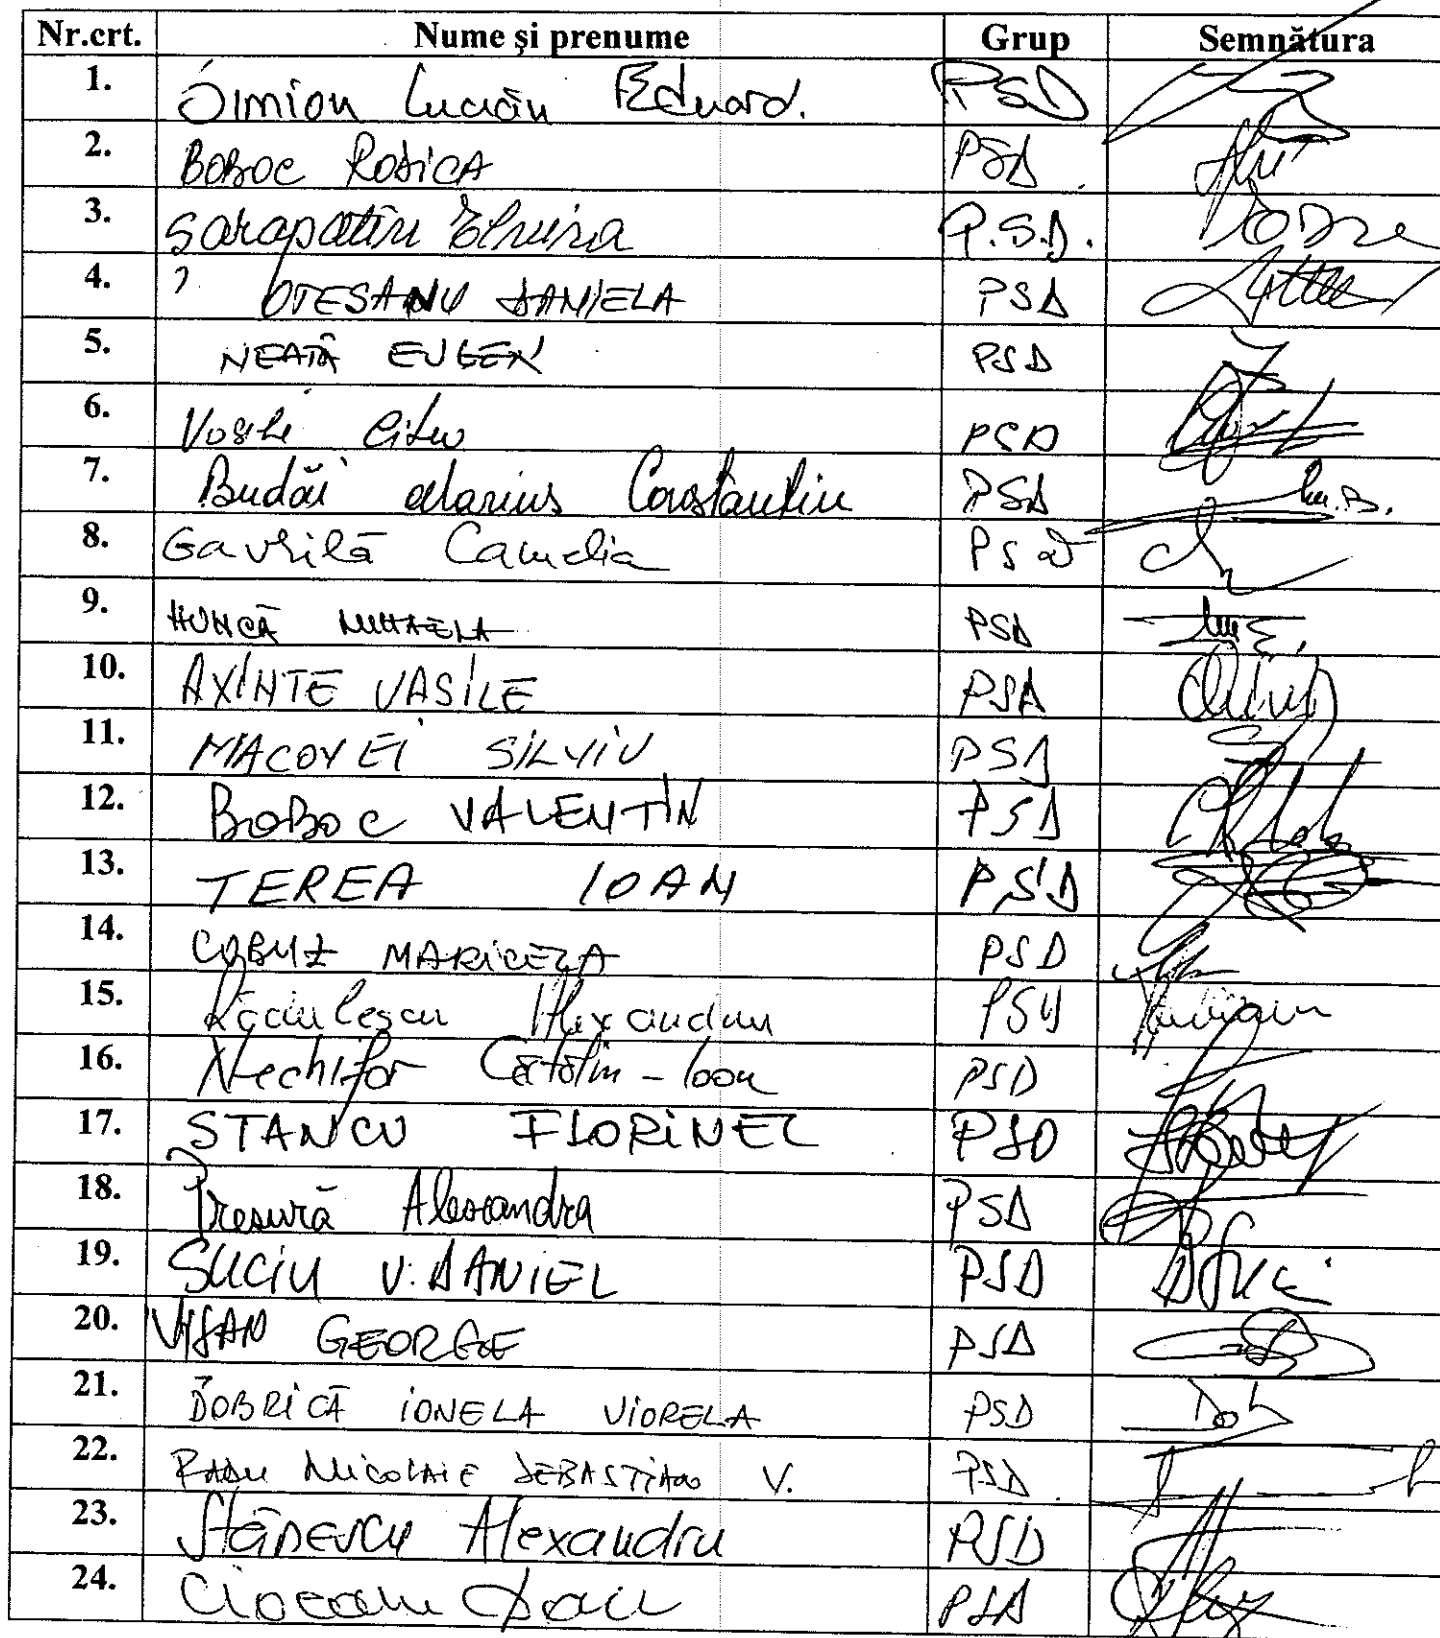 Nr.crt. Nume și prenume Grup Semnătura
1. Simion Lucian Eduard. PSD
2. BOBOC RODICA PSD
3. Sărăpatin Elvira P.S.D.
4. OTESANU DANIELA PSD
5. NEAȚĂ EUGEN PSD
6. Vasile Citu PSD
7. Budăi Marius Constantin PSD M.B.
8. Gavrilă Camelia PSD
9. HUNCĂ MIHAELA PSD
10. AXINTE VASILE PSD
11. MACOVEI SILVIU PSD
12. BOBOC VALENTIN PSD
13. TEREA IOAN PSD
14. COBUZ MARICELA PSD
15. Alexandru PSD
16. Nechifor Cătălin - Ioan PSD
17. STANCU FLORINEL PSD
18. Presură Alexandra PSD
19. SUCIU V. DANIEL PSD
20. VIȘAN GEORGE PSD
21. DOBRICĂ IONELA VIORELA PSD Dob
22. RADU NICOLAIE SEBASTIAN V. PSD
23. Stănescu Alexandru PSD
24. Ciocan Dan PSD